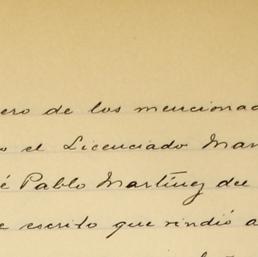 ero de los mencionad
o el Licenciado Man
é Pablo Martínez del
e escrito que rindió a